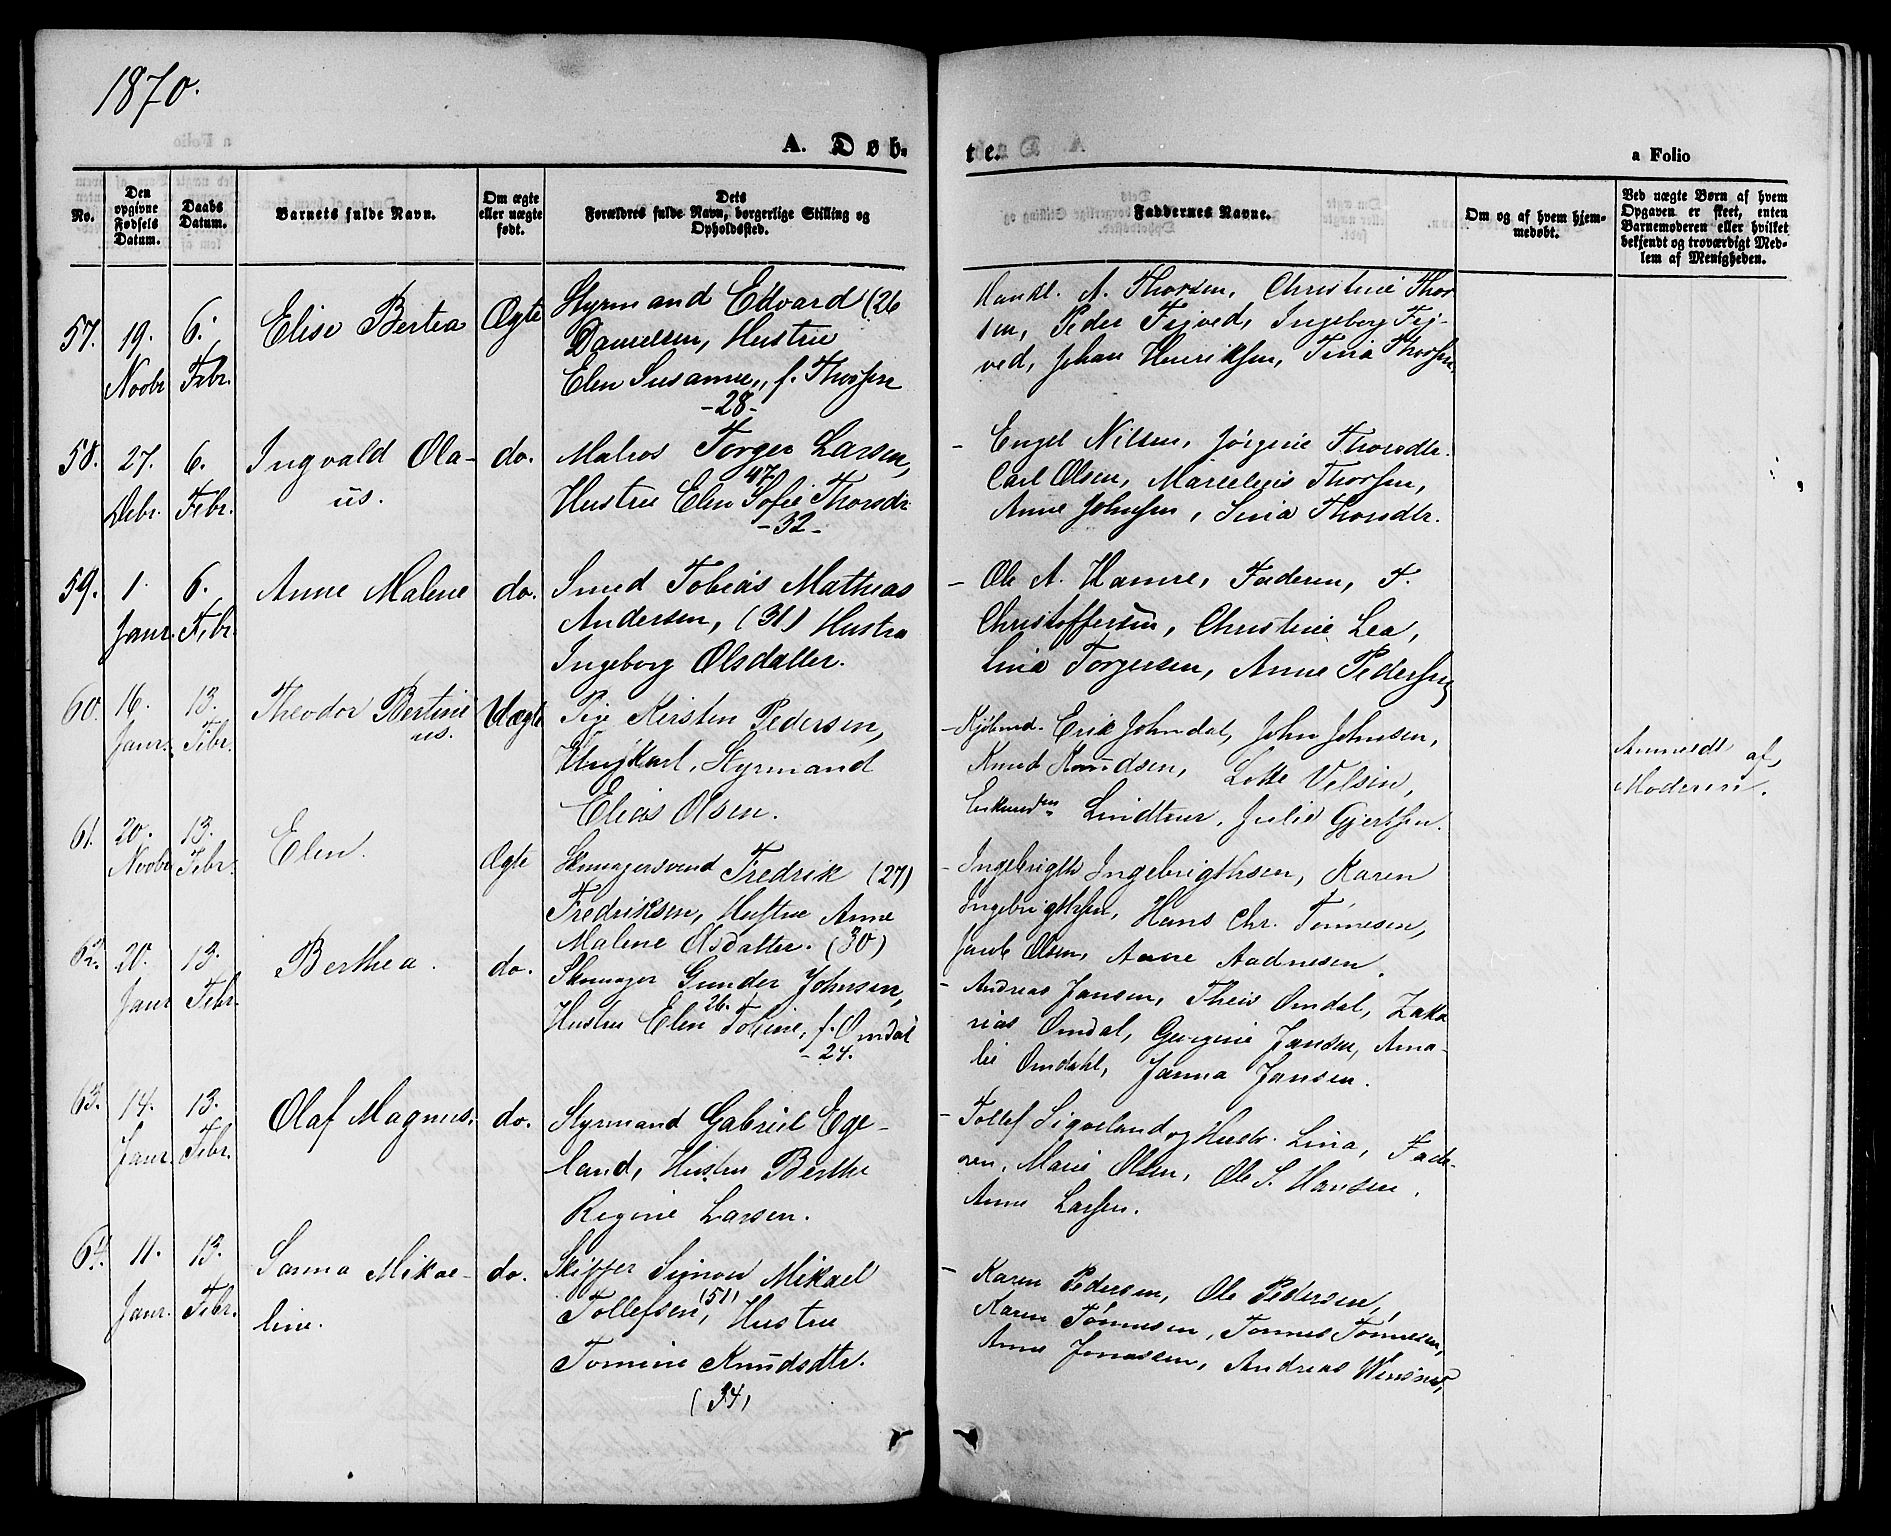 1870.
A. Døb-
te.
a Folio
No.
Den opgivne Fødsels Datum.
Daabs Datum.
Barnets fulde Navn.
Om ægte eller uægte født.
Dets Forældres fulde Navn, borgerlige Stilling og Opholdssted.
Faddernes Navne.
Om og af hvem hjemmedøbt.
Ved uægte Børn af hvem Opgaven er skeet, enten Barnemoderen eller hvilket bekjendt og troværdigt Medlem af Menigheden.
57. 19. Novbr 6. Febr. Elise Bertea Ægte
Styrmand Edvard (26
Danielsen, Hustru
Elen Susanne, f. Thorsen
-28-
A. Thorsen, Christine Thor
sen, Peder Fejved, Ingeborg Fej-
ved, Johan Henriksen, Tina Thorsen
58. 27. Debr. 6. Febr. Ingvald Ola-
us. do.
Matros Torger Larsen,
47
Hustru Elen Sofie Thorsdr
-32-
- Engel Nilsen, Jörgine Thorsdtr.
Carl Olsen, Marcelius Thorsen,
Anne Johnsen, Sina Thorsdtr.
59. 1. Janr. 6. Febr. Anne Malene do.
Smed Tobias Mathias
Andersen, (31) Hustru
Ingeborg Olsdatter.
- Ole A. Hamre, Faderen, T.
Christoffersen, Christine Lea,
Lina Torgersen, Anne Pedersen
60. 16. Janr. 13. Febr. Theodor Bertini
us. Uægte
Pige Kirsten Pedersen,
Ungkarl, Styrmand
Elias Olsen.
- Kjöbmd. Erik Johndal, John Johnsen,
Knud Knudsen, Lotte Velsin,
Lindtner, Julie Gjertsen.
Anmeldt af
Moderen.
61. 20. Novbr 13. Febr. Elen. Ægte
Skomagersvend Fredrik (27)
Fredriksen, Hustru Anne
Malene Olsdatter. (30)
- Ingebrigth Ingebrigthsen, Karen
Ingebrigthsen, Hans Chr. Tönnesen,
Jacob Olsen, Anne Aadnesen.
62. 20. Janr 13. Febr. Berthea. do.
Skomager Gunder Johnsen,
26.
Hustru Elen Toline, f. Omdal
-24.
- Andreas Jansen, Theis Omdal, Zaka
rias Omdal, Georgine Jansen, Ama-
lie Omdahl, Janna Jansen.
63. 14. Janr. 13. Febr. Olaf Magnus. do.
Styrmand Gabriel Ege-
land, Hustru Berthe
Regine Larsen.
- Tollef Sigveland og Hustr. Lina, Fade-
ren, Marie Olsen, Ole S. Hansen,
Anne Larsen.
64. 11. Janr. 13. Febr. Sanna Mikae-
line. do.
Skipper Simon Mikael
Tollefsen, (51) Hustru
Tomine Knudsdtr.
(34)
- Karen Pedersen, Ole Pedersen,
Karen Tönnesen, Tönnes Tönnesen,
Anne Jonassen, Andreas Winsnes,